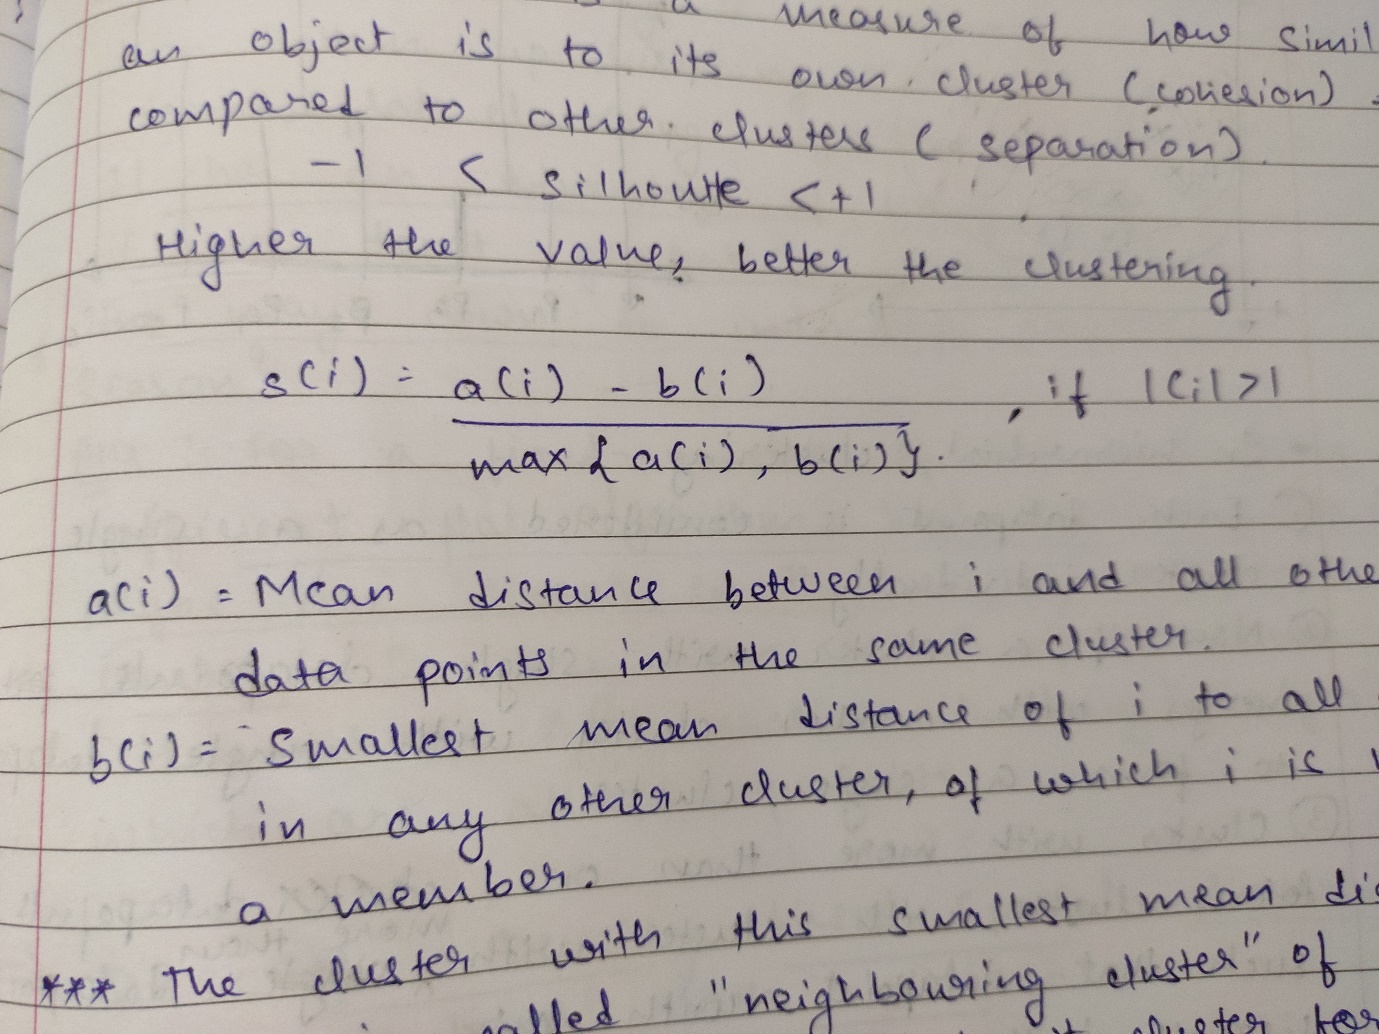 a measure of how simil
an object is to its own cluster (cohesion)
compared to other clusters (separation)
-1 < silhoutte < +1
Higher the value, better the clustering.
s(i) = a(i) - b(i) , if |Ci|>1
max{a(i), b(i)}.
a(i) = Mean distance between i and all othe
data points in the same cluster.
b(i) = Smallest mean distance of i to all
in any other cluster, of which i is
a member.
*** The cluster with this smallest mean dis
called "neighbouring cluster" of
cluster for